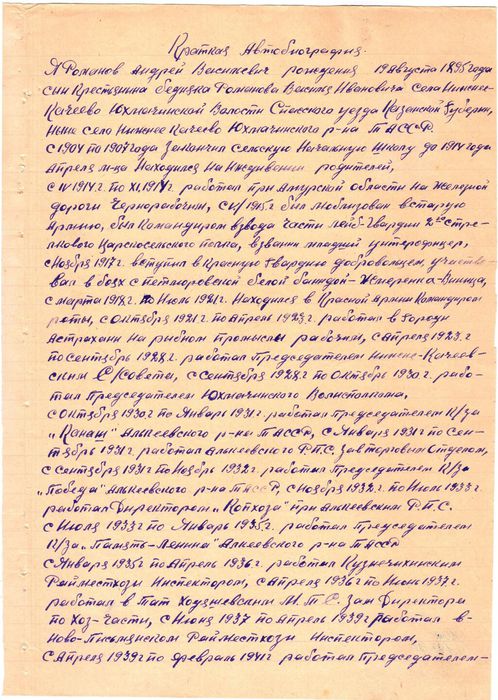 Краткая Автобиография.
Я Романов Андрей Васильевич рождения 19 Августа 1895 года
сын Крестьянина бедняка Романова Василия Ивановича села Нижнее-
Качеево Юхмачинской Волости Спасского уезда Казанской Губернии,
ныне село Нижнее Качеево Юхмачинского р-на ТАССР.
С 1904 по 1907 года Закончил Сельскую Начальную Школу до 1914 года
Апреля м-ца Находился на Иждивении родителей,
с IV 1914 г. по XI, 1914 г. работал при Амурской области на железной
дороги Чернорабочим, с 1915 г. был мобилизован в старую
Армию, был Командиром взвода части лейб-Гвардии 2го стре-
лкового Царскосельского полка, в звании младший унтерофицер,
с Ноября 1917 г. вступил в Красную Гвардию добровольцем, участво-
вал в боях с петлюровской белой бандой - Жмеренка-Виница,
с марта 1918 г. по Июль 1921 г. Находился в Красной Армии Командиром
роты, с Октября 1921 г. по Апрель 1923 г. работал в городи
Астрахани на рыбном промыслы рабочим, с Апреля 1923 г.
по Сентябрь 1928 г. работал председателем Нижне-Качеев-
ским С/Совета, с Сентября 1928 г. по Октябрь 1930 г. рабо-
тал председателем Юхмачинского Волисполкома,
с Октября 1930 г. по Январь 1931 г. работал председателем К/за
"Канаш" Алькеевского р-на ТАССР, с Января 1931 г. по Сен-
тябрь 1931 г. работал Алькеевского Р.П.С. Зав торговым Отделом,
с Сентября 1931 г. по Ноябрь 1932 г. работал председателем К/за
"Победа" Алькеевского р-на ТАССР, с Ноября 1932 г. по Июль 1933 г.
работал Директором "Копхоза" при Алькеевским Р.П.С.
с Июля 1933 г. по Январь 1935 г. работал председателем
К/за "Память-Ленина" Алькеевского р-на ТАССР
с Января 1935 г. по Апрель 1936 г. работал Кузнечихинским
Райместхозы Инспектором, с Апреля 1936 г. по Июнь 1937 г.
работал в Тат Ходяшевским М.Т.С. Зам Директора
по хоз-части, с Июня 1937 по Апрель 1939 г. работал в-
Ново-Письмянском Райместхозы Инспектором,
с Апреля 1939 г. по февраль 1941 г. работал председателем-